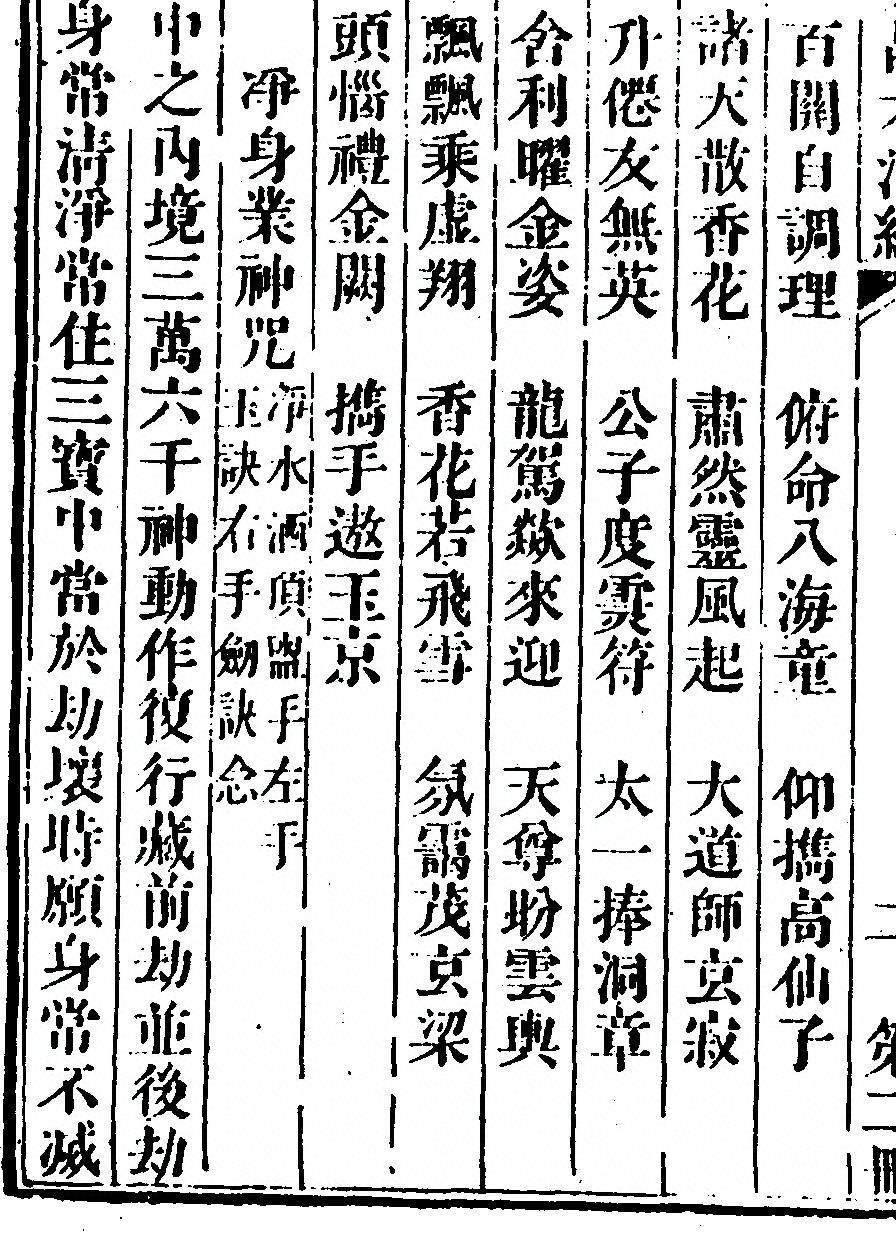 二 第二冊
百關自調理 俯命八海童 仰攜高仙子
諸天散香花 肅然靈風起 大道師玄寂
升僊友無英 公子度靈符 太一捧洞章
舍利曜金姿 龍駕欻來迎 天尊盼雲輿
飄飄乘虛翔 香花若飛雪 氛靄茂玄梁
頭惱禮金闕 攜手遨玉京
淨身業神咒
淨水洒頂盥手左手
玉訣右手劒訣念
中之內境三萬六千神動作履行藏前劫並後劫
身常清淨常住三寶中當於劫壞時願身常不滅